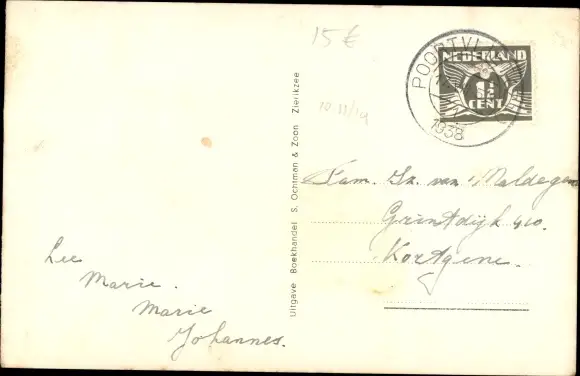 15 €
POORTVL
1938
NEDERLAND
1½
CENT
Uitgave Boekhandel S. Ochtman & Zoon Zierikzee
Fam. Iz. van 't Maldegem
Grindtdijk 410.
Kortgene.
Lee
Marie.
Marie
Johannes.